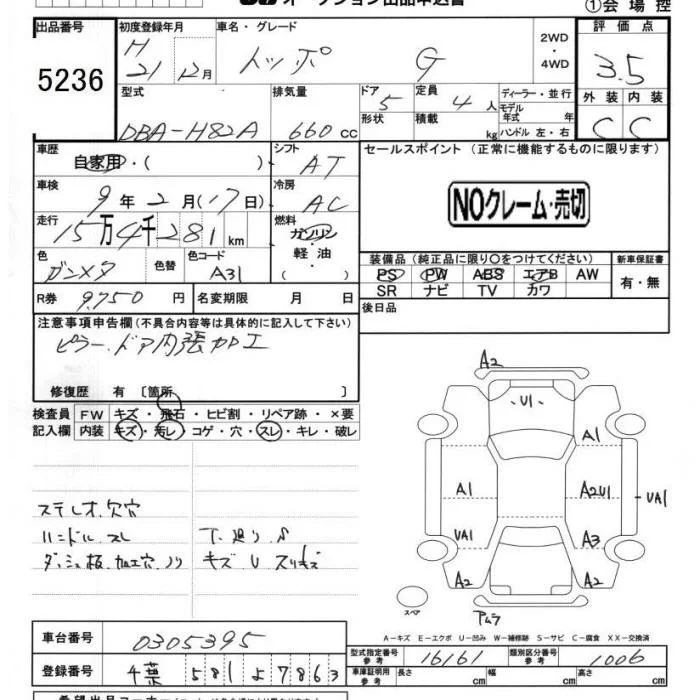 オークション出品申込書
①会場控
出品番号 5236
初度登録年月 H 21 12月
車名・グレード トッポ G
2WD・4WD
評価点 3.5
型式 DBA-H82A
排気量 660 cc
ドア 5
形状
定員 4 人
積載 kg
ディーラー・並行
モデル年式 年
ハンドル 左・右
外装 内装
C C
車歴 自家用・( )
シフト AT
セールスポイント (正常に機能するものに限ります)
NOクレーム・売切
車検 9年 2月(17日)
冷房 AC
走行 15万4千281km
燃料 ガソリン・軽油・( )
色 ガンメタ
色替
色コード A31
装備品(純正品に限り○をつけてください)
新車保証書
PS PW ABS エアB AW
SR ナビ TV カワ
有・無
R券 9,750 円
名変期限 月 日
後日品
注意事項申告欄(不具合内容等は具体的に記入して下さい)
ピラー、ドア内張加工
修復歴 有 〔箇所 〕
検査員記入欄
FW キズ・飛石・ヒビ割・リペア跡・×要
内装 キズ・汚レ・コゲ・穴・スレ・キレ・破レ
ステレオ欠穴
ハンドル スレ
ダッシュ板 加工穴 ノリ
下廻り S
キズ U スリキズ
A2
U1
A1
A1
A2U1
UA1
UA1
A3
A2
A2
スペア
アムラ
A-キズ E-エクボ U-凹み W-補修跡 S-サビ C-腐食 XX-交換済
車台番号 0305395
登録番号 千葉 581 よ 7863
型式指定番号 参考 16161
類別区分番号 参考 1006
車庫証明用 参考
長さ cm
幅 cm
高さ cm